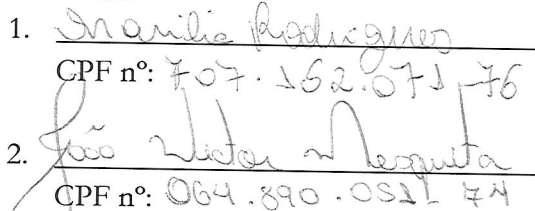 1. Marilia Rodrigues
CPF nº: 707.162.071-76
2. João Victor Mesquita
CPF nº: 064.890.051-74